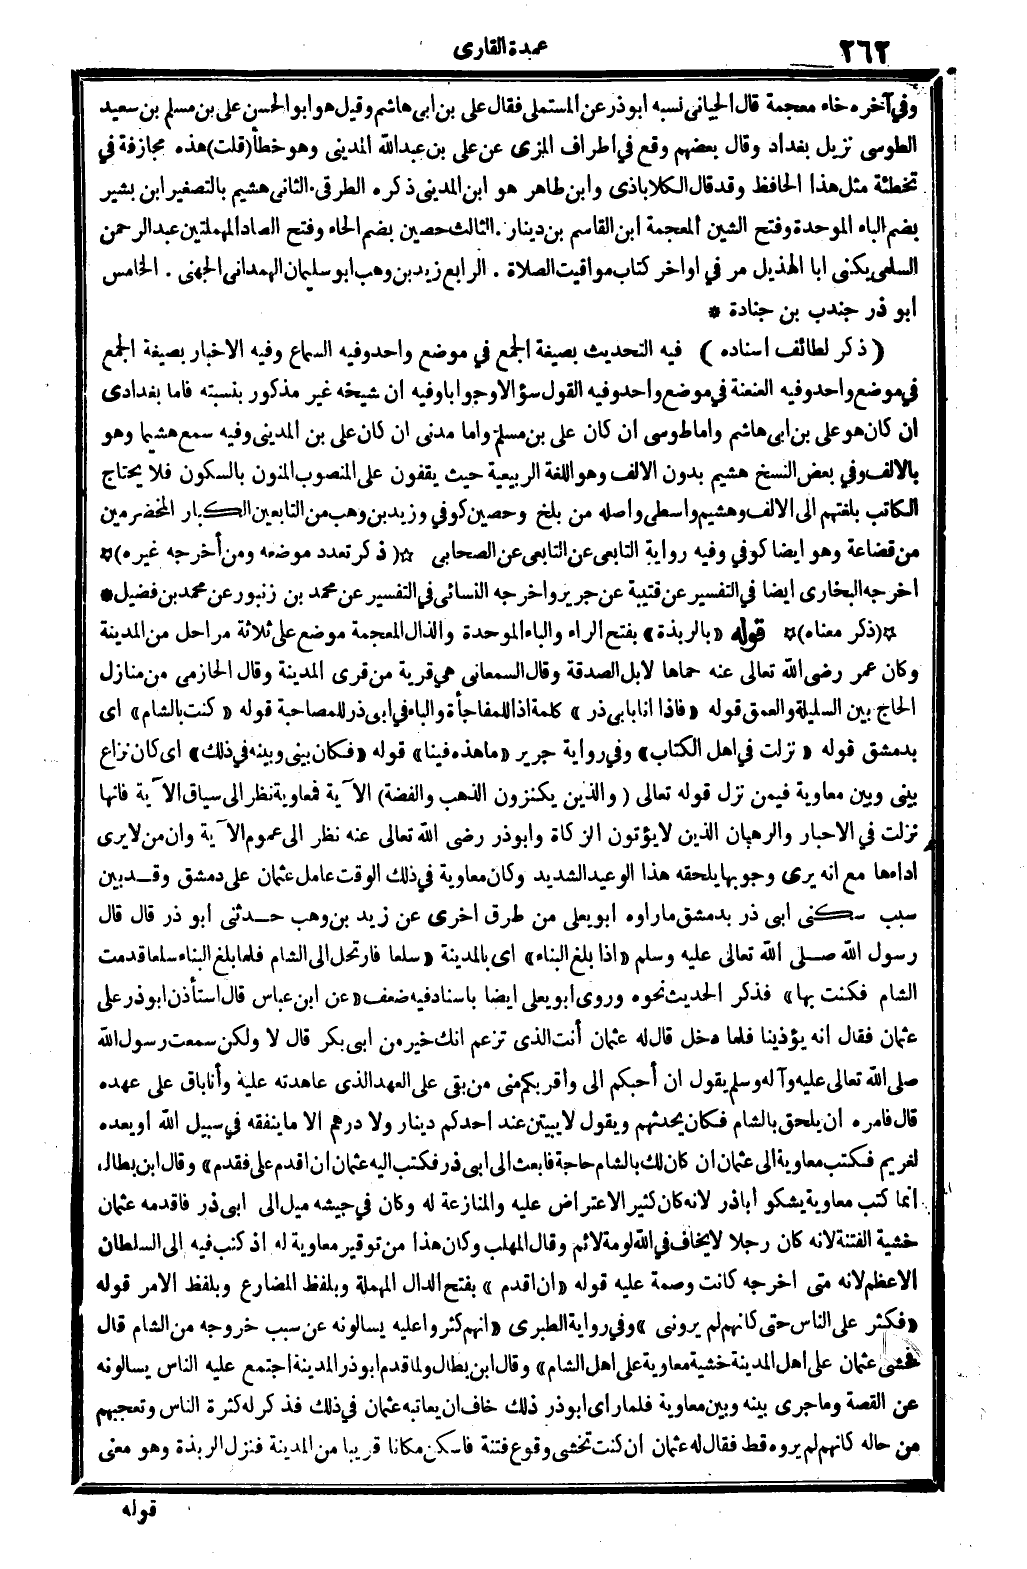 ٢٦٢
عمدة القارى
وفي آخره خاء معجمة قال الجيانى نسبه ابوذر عن المستملى فقال على بن ابى هاشم وقيل هو ابو الحسن على بن مسلم بن سعيد
الطوسى نزيل بغداد وقال بعضهم وقع في اطراف المزى عن على بن عبد الله المدينى وهو خطأ (قلت) هذه مجازفة في
تخطئة مثل هذا الحافظ وقد قال الكلاباذى وابن طاهر هو ابن المدينى ذكره الطرقى . الثانى هشيم بالتصغير ابن بشير
بضم الباء الموحدة وفتح الشين المعجمة ابن القاسم بن دينار . الثالث حصين بضم الحاء وفتح الصاد المهملتين عبد الرحمن
السلمى يكنى ابا الهذيل مر في اواخر كتاب مواقيت الصلاة . الرابع زيد بن وهب ابو سليمان الهمدانى الجهنى . الخامس
ابو ذر جندب بن جنادة *
( ذكر لطائف اسناده ) فيه التحديث بصيغة الجمع في موضع واحد وفيه السماع وفيه الاخبار بصيغة الجمع
في موضع واحد وفيه العنعنة في موضع واحد وفيه القول سؤالا وجوابا وفيه ان شيخه غير مذكور بنسبته فاما بغدادى
ان كان هو على بن ابى هاشم واما طوسى ان كان على بن مسلم واما مدنى ان كان على بن المدينى وفيه سمع هشيما وهو
بالالف وفي بعض النسخ هشيم بدون الالف وهو اللغة الربيعية حيث يقفون على المنصوب المنون بالسكون فلا يحتاج
الكاتب بلغتهم الى الالف وهشيم واسطى واصله من بلخ وحصين كوفي وزيد بن وهب من التابعين الكبار المخضرمين
من قضاعة وهو ايضا كوفي وفيه رواية التابعى عن التابعى عن الصحابى ☆( ذكر تعدد موضعه ومن أخرجه غيره )☆
اخرجه البخارى ايضا في التفسير عن قتيبة عن جرير واخرجه النسائى في التفسير عن محمد بن زنبور عن محمد بن فضيل *
☆(ذكر معناه)☆ قوله «بالربذة» بفتح الراء والباء الموحدة والذال المعجمة موضع على ثلاثة مراحل من المدينة
وكان عمر رضى الله تعالى عنه حماها لابل الصدقة وقال السمعانى هى قرية من قرى المدينة وقال الحازمى من منازل
الحاج بين السليلة والعمق قوله «فاذا انا بابى ذر» كلمة اذا للمفاجأة والباء في ابى ذر للمصاحبة قوله «كنت بالشام» اى
بدمشق قوله «نزلت في اهل الكتاب» وفي رواية جرير «ما هذه فينا» قوله «فكان بينى وبينه في ذلك» اى كان نزاع
بينى وبين معاوية فيمن نزل قوله تعالى (والذين يكنزون الذهب والفضة) الآية فمعاوية نظر الى سياق الآية فانها
نزلت في الاحبار والرهبان الذين لا يؤتون الزكاة وابو ذر رضى الله تعالى عنه نظر الى عموم الآية وان من لا يرى
اداءها مع انه يرى وجوبها يلحقه هذا الوعيد الشديد وكان معاوية في ذلك الوقت عامل عثمان على دمشق وقد بين
سبب سكنى ابى ذر بدمشق ما رواه ابو يعلى من طرق اخرى عن زيد بن وهب حدثنى ابو ذر قال قال
رسول الله صلى الله تعالى عليه وسلم «اذا بلغ البناء» اى بالمدينة «سلعا فارتحل الى الشام فلما بلغ البناء سلعا قدمت
الشام فكنت بها» فذكر الحديث نحوه وروى ابو يعلى ايضا باسناد فيه ضعف «عن ابن عباس قال استأذن ابو ذر على
عثمان فقال انه يؤذينا فلما دخل قال له عثمان أنت الذى تزعم انك خير من ابى بكر قال لا ولكن سمعت رسول الله
صلى الله تعالى عليه وآله وسلم يقول ان أحبكم الى وأقربكم منى من بقى على العهد الذى عاهدته عليه وأنا باق على عهده
قال فامره ان يلحق بالشام فكان يحدثهم ويقول لا يبيتن عند احدكم دينار ولا درهم الا ما ينفقه في سبيل الله او يعده
لغريم فكتب معاوية الى عثمان ان كان لك بالشام حاجة فابعث الى ابى ذر فكتب اليه عثمان ان اقدم على فقدم» وقال ابن بطال
انما كتب معاوية يشكو أباذر لانه كان كثير الاعتراض عليه والمنازعة له وكان في جيشه ميل الى ابى ذر فاقدمه عثمان
خشية الفتنة لانه كان رجلا لا يخاف في الله لومة لائم وقال المهلب وكان هذا من توقير معاوية له اذ كتب فيه الى السلطان
الاعظم لانه متى اخرجه كانت وصمة عليه قوله «ان اقدم» بفتح الدال المهملة وبلفظ المضارع وبلفظ الامر قوله
«فكثر على الناس حتى كانهم لم يرونى» وفي رواية الطبرى «انهم كثروا عليه يسالونه عن سبب خروجه من الشام قال
فخشى عثمان على اهل المدينة خشية معاوية على اهل الشام» وقال ابن بطال ولما قدم ابو ذر المدينة اجتمع عليه الناس يسالونه
عن القصة وما جرى بينه وبين معاوية فلما راى ابو ذر ذلك خاف ان يعاتبه عثمان في ذلك فذكر له كثرة الناس وتعجبهم
من حاله كانهم لم يروه قط فقال له عثمان ان كنت تخشى وقوع فتنة فاسكن مكانا قريبا من المدينة فنزل الربذة وهو معنى
قوله